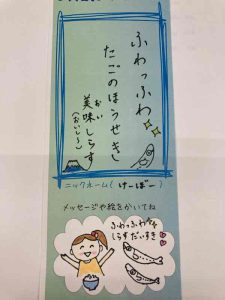 ふわっふわ
たごのほうせきし
美味しらす
おい
(おいしらす)
ニックネーム(けーぼー)
メッセージや絵をかいてね
ふわっふわ
しらすだいすき